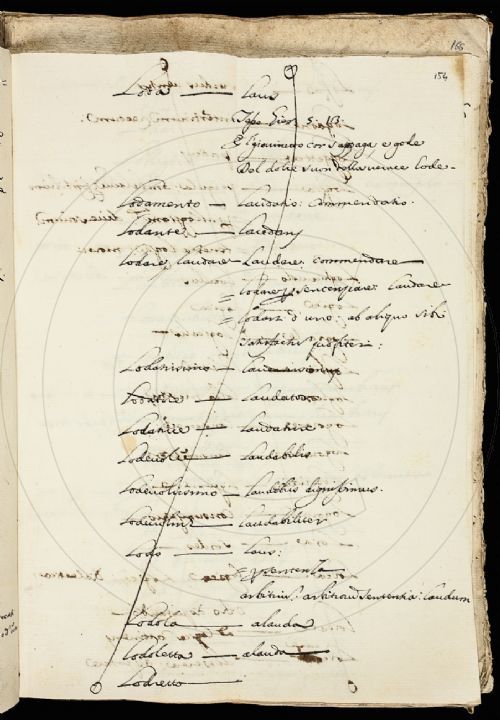 166
154
Loda — Laus
Tasso Gier. 5. 13.
E 'l giovinetto cor s'appaga, e gode
Del dolce suon della verace lode.
Lodamento — Laudatio: Commendatio.
Lodante — Laudans
Lodare, laudare — Laudare: commendare
= lodare p. sentenziare: laudare
= lodarsi d'uno: ab aliquo sibi
satisfactum profiteri:
Lodatissimo —
Lodatore — Laudator
Lodatrice — Laudatrix
Lodevole — Laudabilis
Lodevolissimo — Laudibus dignissimus.
Lodevolm.te — Laudabiliter
Lodo — Laus:
= p. sentenza
arbitrium: arbitrium sententia: laudum
Lodola — alauda
Lodoletta — alauda
Lodretto —